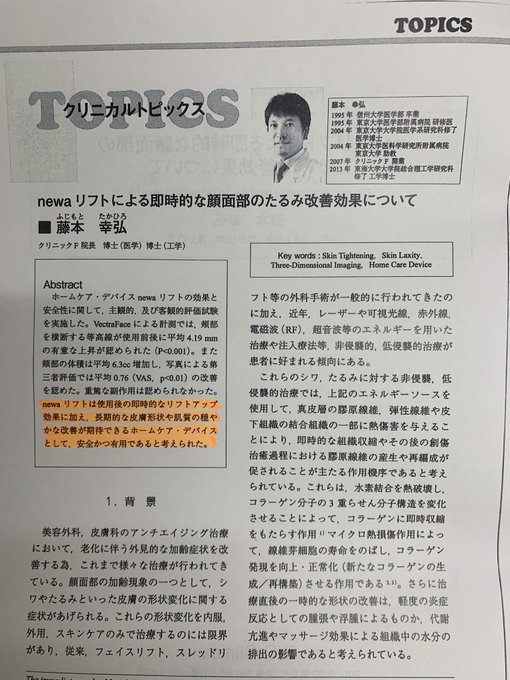 TOPICS
TOPICS
クリニカルトピックス
藤本 幸弘
1995年 信州大学医学部 卒業
1995年 東京大学医学部附属病院 研修医
2004年 東京大学大学院医学系研究科修了
医学博士
2004年 東京大学医科学研究所附属病院
東京大学 助教
2007年 クリニックF 開業
2013年 東海大学大学院総合理工学研究科
修了 工学博士
newa リフトによる即時的な顔面部のたるみ改善効果について
ふじもと たかひろ
■ 藤本 幸弘
クリニックF 院長 博士(医学) 博士(工学)
Key words : Skin Tightening, Skin Laxity,
Three-Dimensional Imaging, Home Care Device
Abstract
ホームケア・デバイス newa リフトの効果と
安全性に関して,主観的,及び客観的評価試験
を実施した。VectraFace による計測では,頬部
を横断する等高線が使用前後に平均 4.19 mm
の有意な上昇が認められた (P<0.001)。また
頬部の体積は平均 6.3cc 増加し,写真による第
三者評価では平均 0.76 (VAS, p<0.01) の改善
を認めた。重篤な副作用は認められなかった。
newa リフトは使用後の即時的なリフトアップ
効果に加え,長期的な皮膚形状や肌質の穏や
かな改善が期待できるホームケア・デバイス
として,安全かつ有用であると考えられた。
1. 背 景
美容外科,皮膚科のアンチエイジング治療
において,老化に伴う外見的な加齢症状を改
善する為,これまで様々な治療が行われてき
ている。顔面部の加齢現象の一つとして,シ
ワやたるみといった皮膚の形状変化に関する
症状があげられる。これらの形状変化を内服,
外用,スキンケアのみで治療するのには限界
があり,従来,フェイスリフト,スレッドリ
フト等の外科手術が一般的に行われてきたの
に加え,近年,レーザーや可視光線,赤外線,
電磁波 (RF),超音波等のエネルギーを用いた
治療や注入療法等,非侵襲的,低侵襲的治療が
患者に好まれる傾向にある。
これらのシワ,たるみに対する非侵襲,低
侵襲的治療では,上記のエネルギーソースを
使用して,真皮層の膠原線維,弾性線維や皮
下組織の結合組織の一部に熱傷害を与えるこ
とにより,即時的な組織収縮やその後の創傷
治癒過程における膠原線維の産生や再編成が
促されることが主たる作用機序であると考え
られている。これらは,水素結合を熱破壊し,
コラーゲン分子の3重らせん分子構造を変化
させることによって,コラーゲンに即時収縮
をもたらす作用とマイクロ熱損傷作用によっ
て,線維芽細胞の寿命をのばし,コラーゲン
発現を向上・正常化(新たなコラーゲンの生
成/再構築)させる作用である。さらに治
療直後の一時的な形状の改善は,軽度の炎症
反応としての腫脹や浮腫によるものか,代謝
亢進やマッサージ効果による組織中の水分の
排出の影響であると考えられている。